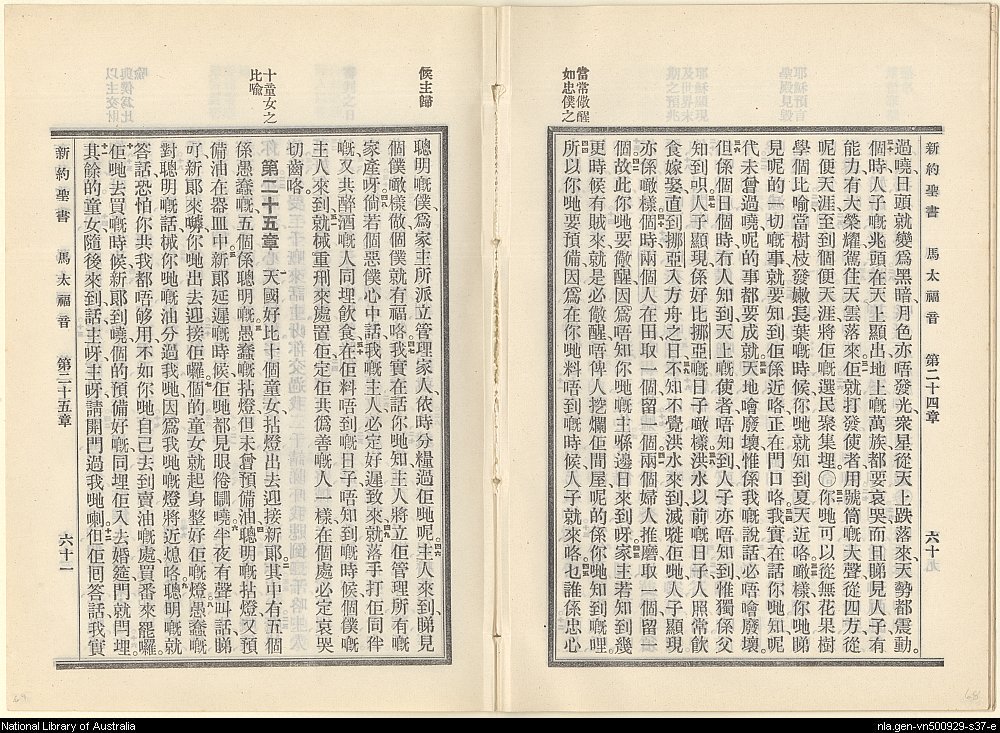 當常儆醒
如忠僕之
新約聖書 馬太福音 第二十四章 六十一
過曉日頭就變為黑暗、月色亦唔發光、衆星從天上跌落來、天勢都震動。
個時人子嘅兆頭在天上顯出、地上嘅萬族都要哀哭、而且睇見人子有
能力有大榮耀、駕住天雲落來。佢就打發使者用號筒嘅大聲、從四方從
呢便天涯至到個便天涯、將佢嘅選民聚集埋。○你哋可以從無花果樹
學個比喻、當樹枝發嫩長葉嘅時候、你哋就知到夏天近咯。噉樣你哋睇
見呢的一切嘅事、就要知到佢係近咯、正在門口咯。我實在話你哋知、呢
代未曾過曉、呢有的事都要成就。天地噲廢壞、惟係我嘅說話必唔噲廢壞。
但係個日個時、有人知到、天上嘅使者唔知到、人子亦唔知到、惟獨係父
知到。人子顯現係好比挪亞嘅日子噉樣。洪水以前嘅日子、人照常飲
食嫁娶、直到挪亞入方舟之日、不知不覺洪水來到、滅曉佢哋、人子顯現
亦係噉樣。個時兩個人在田、取一個留一個。兩個婦人推磨、取一個留一
個。故此你哋要儆醒、因為唔知你哋嘅主喺邊日來到呀。家主若知到幾
更時候有賊來、就是必儆醒、唔俾人挖爛佢間屋、呢的係你哋知到嘅哩。
所以你哋要預備、因為在你哋料唔到嘅時候、人子就來咯。也誰係忠心
候主歸
十童女之
比喻
聰明嘅僕、為家主所派立管理家人、依時分糧過佢哋呢。主人來到、睇見
個僕噉樣做、個僕就有福咯。我實在話你哋知、主人將立佢管理所有嘅
家產呀。倘若個惡僕心中話、我嘅主人必定好遲致來、就落手打佢同伴
嘅、又共醉酒嘅人同埋飲食、在佢料唔到嘅日子、唔知到嘅時候、個僕嘅
主人來到、就械重刑來處置佢、定佢共偽善嘅人一樣、在個處必定哀哭
切齒咯。
第二十五章 天國好比十個童女、拈燈出去迎接新郎。其中有五個
係愚蠢嘅、五個係聰明嘅。愚蠢嘅拈燈、但未曾預備油。聰明嘅拈燈、又預
備油在器皿中。新郎延遲嘅時候、佢哋都見眼倦瞓曉。半夜有聲叫話、睇
吓、新郎來嚹、你哋出去迎接佢囉。個的童女就起身、整好佢嘅燈。愚蠢嘅
對聰明嘅話、械你哋嘅油分過我哋、因為我哋嘅燈將近熄咯。聰明嘅就
答話、恐怕你共我都唔够用、不如你哋自己去到賣油嘅處買番來罷囉。
佢哋去買嘅時候、新郎到曉、個的預備好嘅、同埋佢入去婚筵、門就閂埋。
其餘的童女隨後來到、話、主呀主呀、請開門過我哋喇。但佢囘答話、我實
新約聖書 馬太福音 第二十五章 六十二
National Library of Australia
nla.gen-vn500929-s37-e